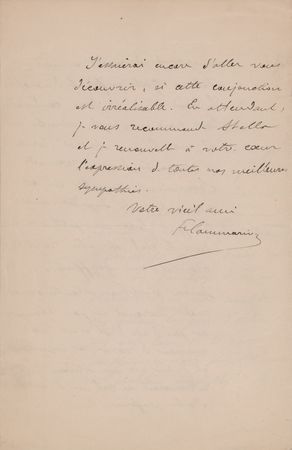 J'essaierai encore d'aller vous
découvrir, si cette conjonction
est irréalisable. En attendant,
je vous recommande Stella
et je renouvelle à votre cœur
l'expression de toutes nos meilleures
sympathies.
Votre vieil ami
Flammarion